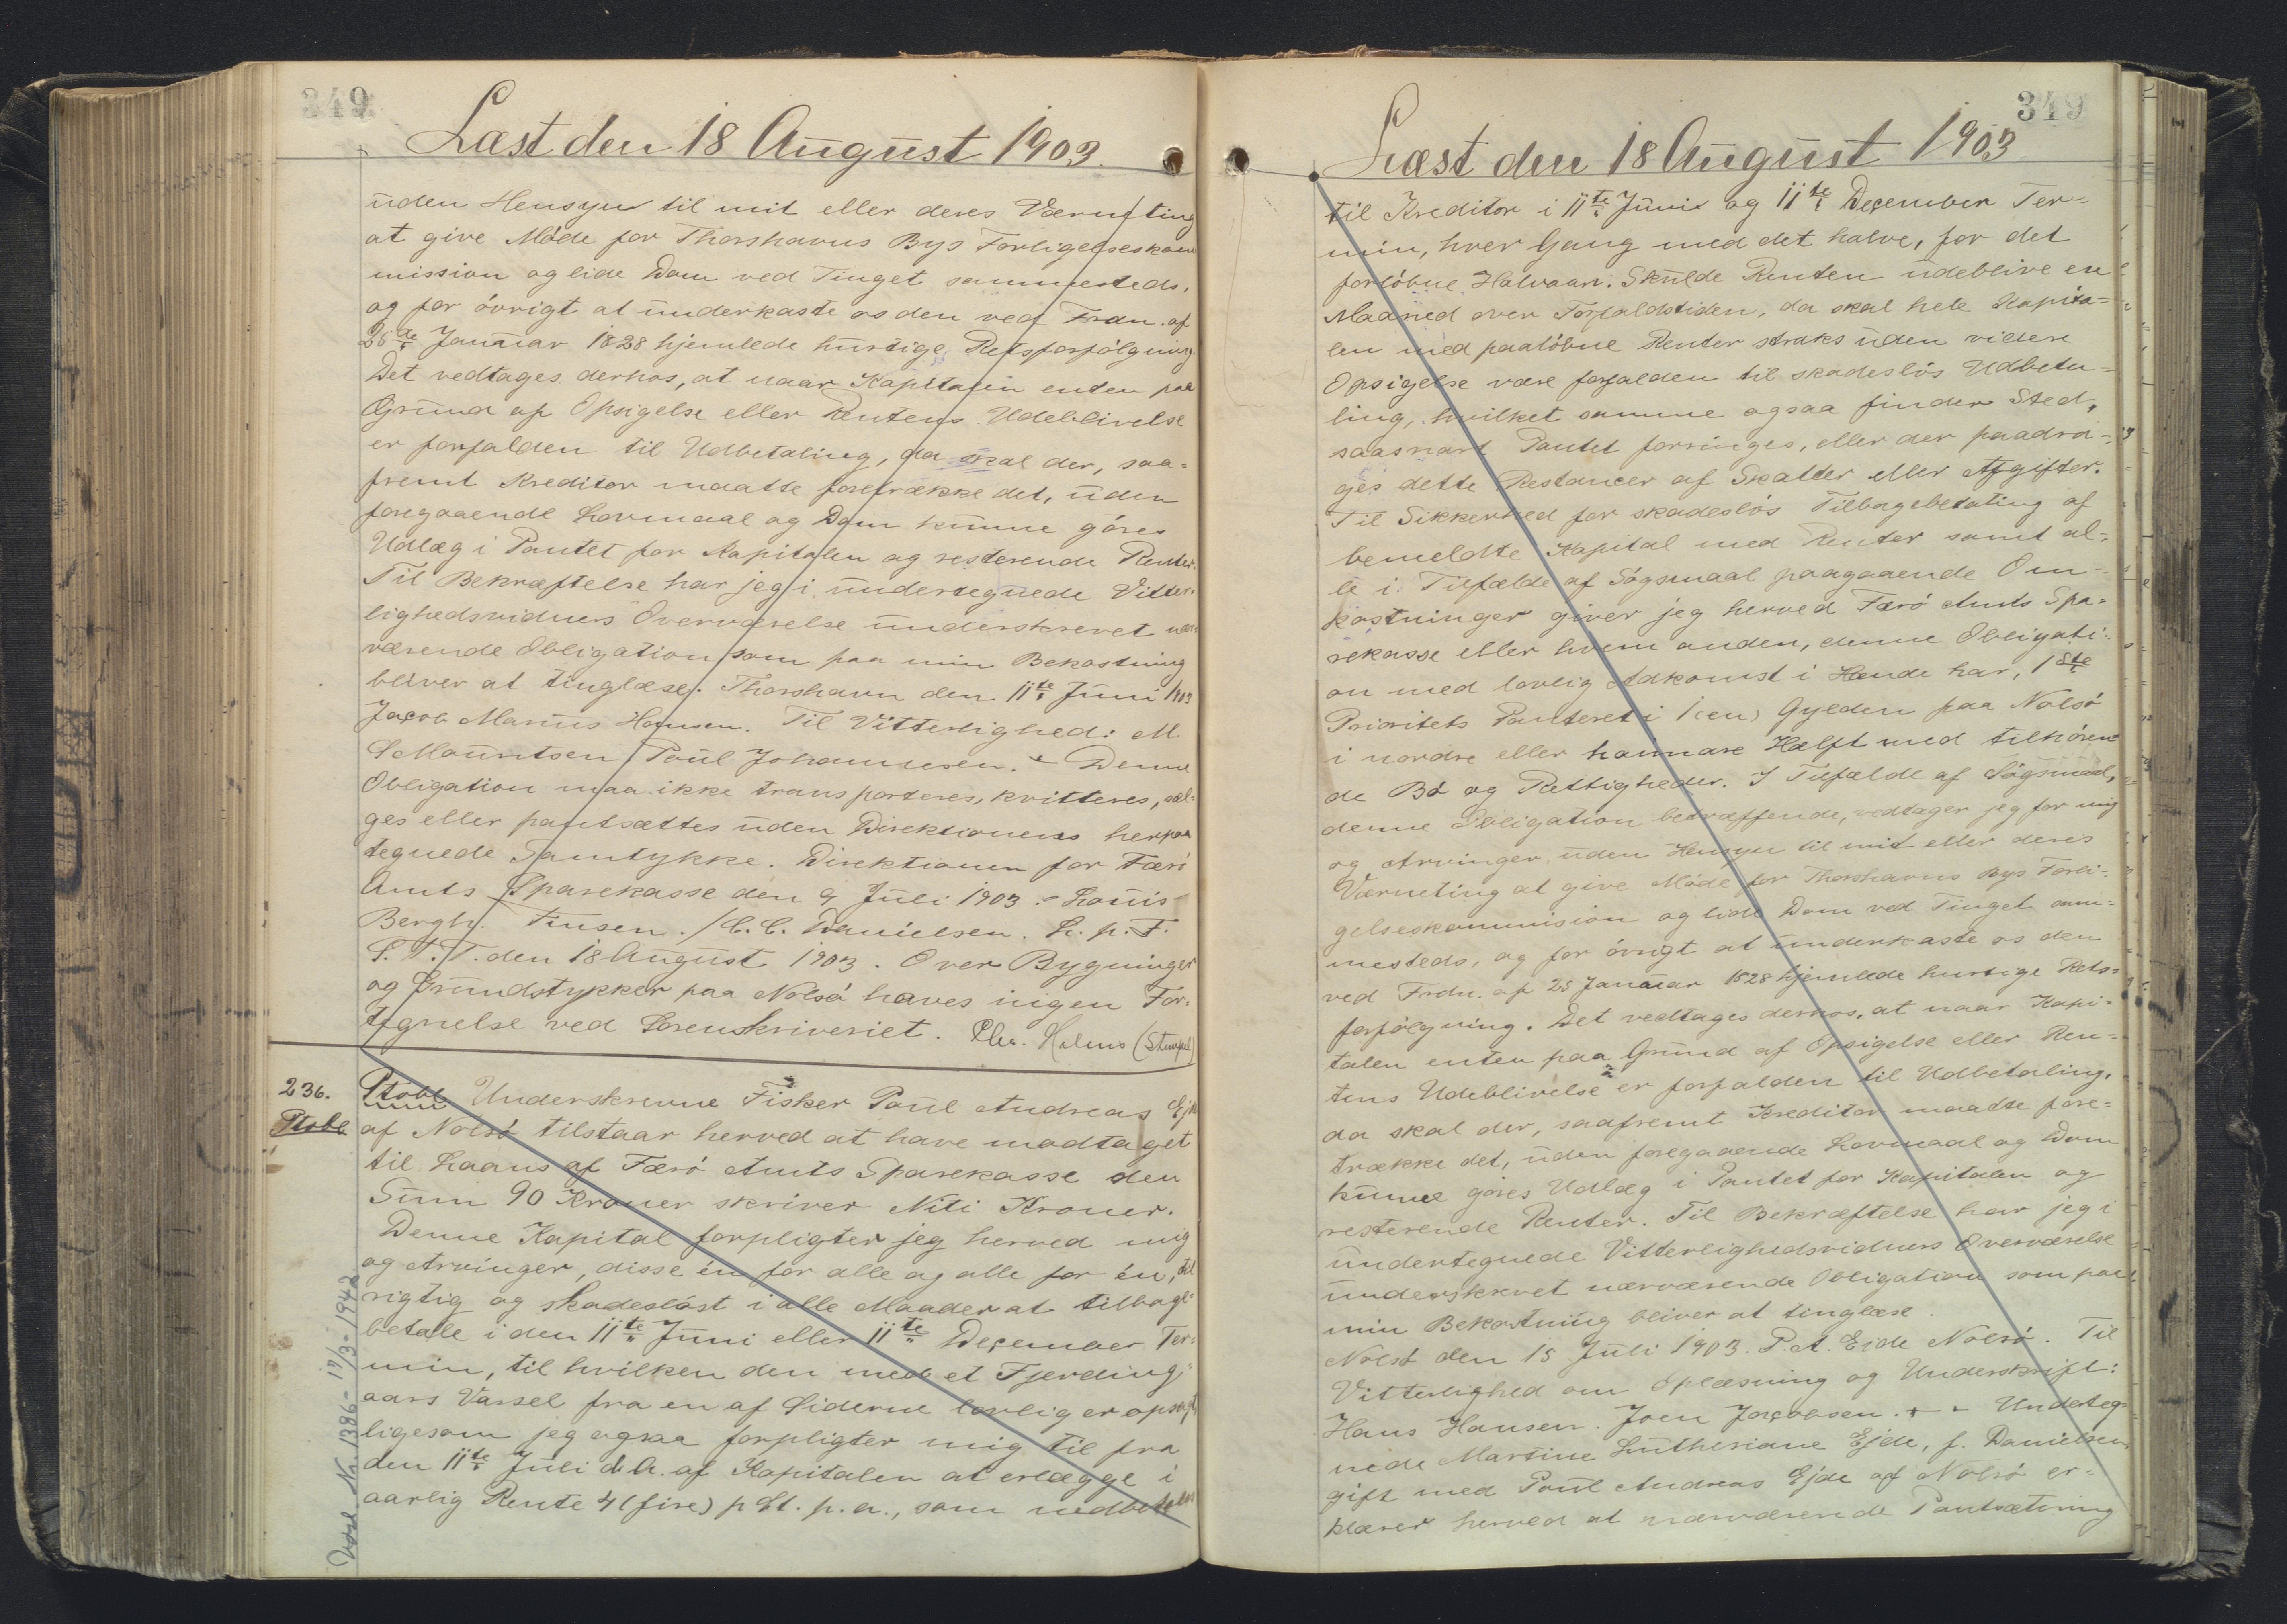 349
Læst den 18 August 1903.
uden Hensyn til mit eller deres Værneting
at give Møde for Thorshavns Bys Forligelseskom
mission og lide Dom ved Tinget sammesteds,
og for övrigt at underkaste os den ved Frdn. af
25de Januar 1828 hjemlede hurtige Retsforfölgning.
Det vedtages derhos, at naar Kapitalen enten paa
Grund af Opsigelse eller Rentens Udeblivelse
er forfalden til Udbetaling, da skal der, saa-
fremt Kreditor maatte foretrække det, uden
foregaaende Lovmaal og Dom kunne göres
Udlæg i Pantet for Kapitalen og resterende Renter.
Til Bekræftelse har jeg i undertegnede Vitter-
lighedsvidners Overværelse underskrevet nær-
værende Obligation som paa min Bekostning
bliver at tinglæse. Thorshavn den 11te Juni 1903
Jacob Marius Hansen. Til Vitterlighed: M.
S Mouritsen Poul Johannesen. + Denne
Obligation maa ikke transporteres, kvitteres, sæl-
ges eller pantsættes uden Direktionens herpaa
tegnede Samtykke. Direktionen for Færö
Amts Sparekasse den 9 Juli 1903. - Louis
Bergh. Finsen. / C. C. Danielsen. L. p. F.
S. T. T. den 18 August 1903. Over Bygninger
og Grundstykker paa Nolsö haves ingen For-
tegnelse ved Sorenskriveriet. Chr. Holms (Stempel)
236. Ptobl. Underskrevne Fisker Poul Andreas Ejde
Ptobl. af Nolsö tilstaar herved at have modtaget
til Laans af Færö Amts Sparekasse den
Sum 90 Kroner skriver Niti Kroner.
Denne Kapital forpligter jeg herved mig
og Arvinger, disse én for alle og alle for én, til
rigtig og skadeslöst i alle Maader at tilbage-
betale i den 11te Juni eller 11te December Ter-
min, til hvilken den med et Fjerding-
aars Varsel fra en af Siderne lovlig er opsagt
ligesom jeg ogsaa forpligter mig til fra
den 11te Juli d. A. af Kapitalen at erlægge i
aarlig Rente 4 (fire) p Ct. p. a., som nedbetales
Nr. 1386 - 17/3 - 1942
349
Læst den 18 August 1903
til Kreditor i 11te Juni og 11te December Ter-
min, hver Gang med det halve, for det
forlöbne Halvaar. Skulde Renten udeblive en
Maaned over Forfaldstiden, da skal hele Kapita-
len med paalöbne Renter straks uden videre
Opsigelse være forfalden til skadeslös Udbeta-
ling, hvilket samme ogsaa finder Sted,
saasnart Pantet forringes, eller der paadra-
ges dette Restancer af Skatter eller Afgifter.
Til Sikkerhed for skadeslös Tilbagebetaling af
bemeldte Kapital med Renter samt al-
le i Tilfælde af Sögsmaal paagaaende Om-
kostninger giver jeg herved Færö Amts Spa-
rekasse eller hvem anden, denne Obligati-
on med lovlig Adkomst i Hænde har, 1ste
Prioritets Panteret i 1 (en) Gylden paa Nolsö
i nordre eller hannare Hælft med tilhören
de Bö og Rettigheder. I Tilfælde af Sögsmaal,
denne Obligation betræffende, vedtager jeg for mig
og Arvinger, uden Hensyn til mit eller deres
Værneting at give Möde for Thorshavns Bys Forli-
gelseskommision og lide Dom ved Tinget sam-
mesteds, og for övrigt at underkaste os den
ved Frdn. af 25 Januar 1828 hjemlede hurtige Rets-
forfölgning. Det vedtages derhos, at naar Kapi-
talen enten paa Grund af Opsigelse eller Ren-
tens Udeblivelse er forfalden til Udbetaling,
da skal der, saafremt Kreditor maatte fore-
trække det, uden foregaaende Lovmaal og Dom
kunne göres Udlæg i Pantet for Kapitalen og
resterende Renter. Til Bekræftelse har jeg i
undertegnede Vitterlighedsvidners Overværelse
underskrevet nærværende Obligation som paa
min Bekostning bliver at tinglæse.
Nolsö den 15 Juli 1903. P. A. Eide Nolsö. Til
Vitterlighed om Oplæsning og Underskrift:
Hans Hansen. Joen Jacobsen. + - Underteg-
nede Martine Lutheriane Ejde, f. Danielsen
gift med Poul Andreas Ejde af Nolsö er-
klærer herved at nærværende Pantsætning